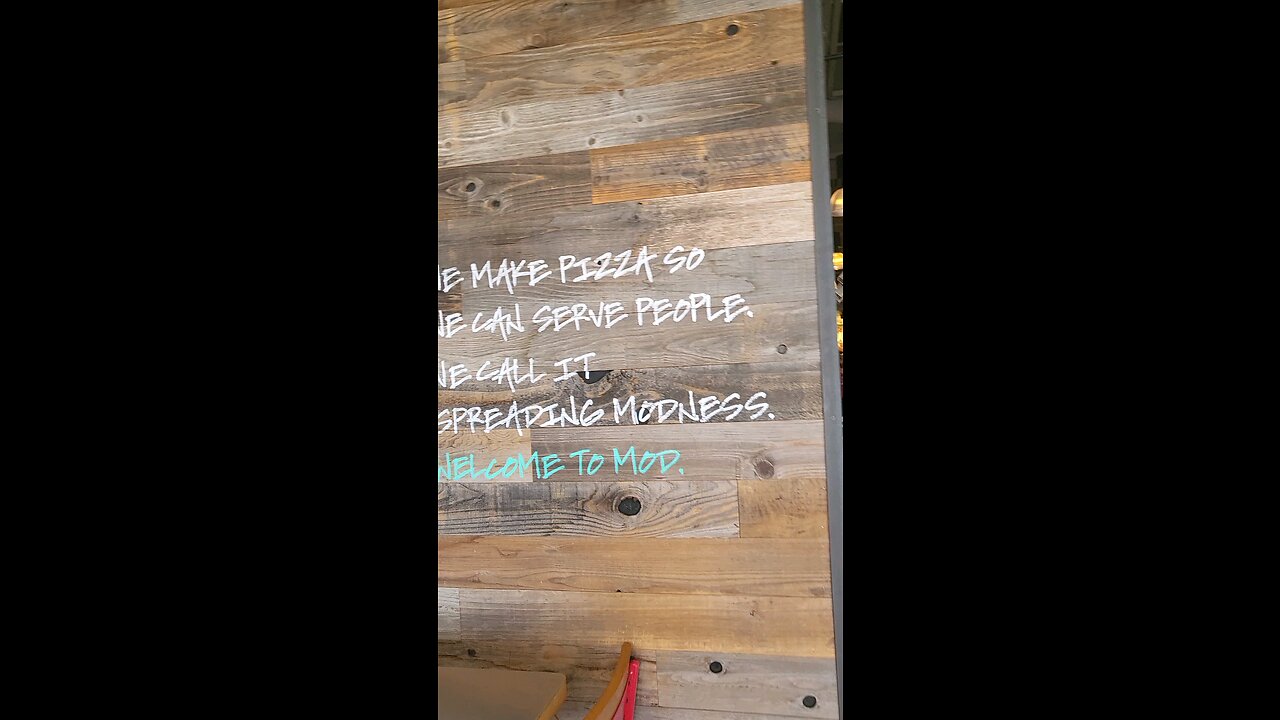 WE MAKE PIZZA SO
WE CAN SERVE PEOPLE.
WE CALL IT
SPREADING MODNESS.
WELCOME TO MOD.